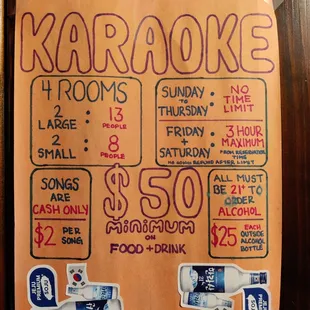 KARAOKE
4 ROOMS
2 LARGE : 13 PEOPLE
2 SMALL : 8 PEOPLE
SUNDAY TO THURSDAY : NO TIME LIMIT
FRIDAY + SATURDAY : 3 HOUR MAXIMUM
FROM RESERVATION TIME
NO REFUND AFTER LIMIT
SONGS ARE
CASH ONLY
$2 PER SONG
$50
MINIMUM
ON
FOOD + DRINK
ALL MUST
BE 21+ TO
ORDER
ALCOHOL
$25 EACH OUTSIDE ALCOHOL BOTTLE
JEJU
PREMIUM
SOJU
JEJU
PREMIUM
SOJU